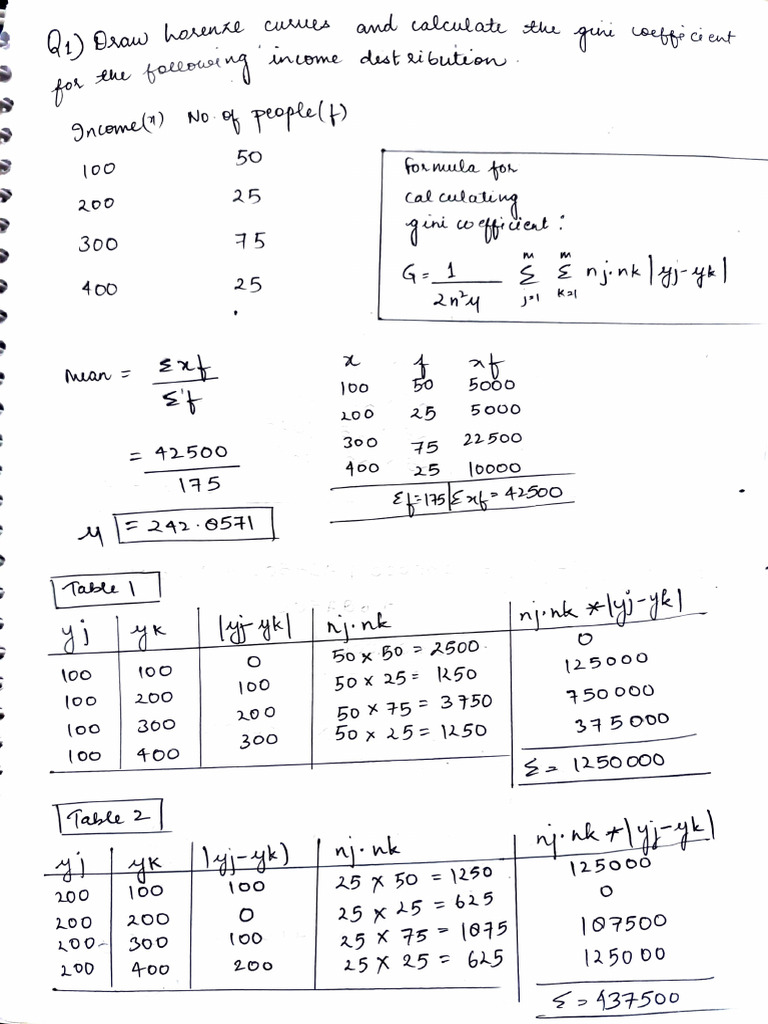 Q1) Draw Lorenze curves and calculate the gini coefficient
for the following income destribution.
Income(x) No. of people(f)
100 50
200 25
300 75
400 25
Formula for
calculating
gini coefficient:
G = 1/2n²μ mΣj=1 mΣk=1 nj.nk |yj-yk|
Mean = Σxf/Σf
= 42500/175
μ = 242.8571
x f xf
100 50 5000
200 25 5000
300 75 22500
400 25 10000
Σf=175 Σxf=42500
Table 1
yj yk |yj-yk| nj.nk nj.nk *|yj-yk|
100 100 0 50 x 50 = 2500 0
100 200 100 50 x 25 = 1250 125000
100 300 200 50 x 75 = 3750 750000
100 400 300 50 x 25 = 1250 375000
Σ = 1250000
Table 2
yj yk |yj-yk) nj.nk nj.nk *|yj-yk|
200 100 100 25 x 50 = 1250 125000
200 200 0 25 x 25 = 625 0
200 300 100 25 x 75 = 1875 187500
200 400 200 25 x 25 = 625 125000
Σ = 437500